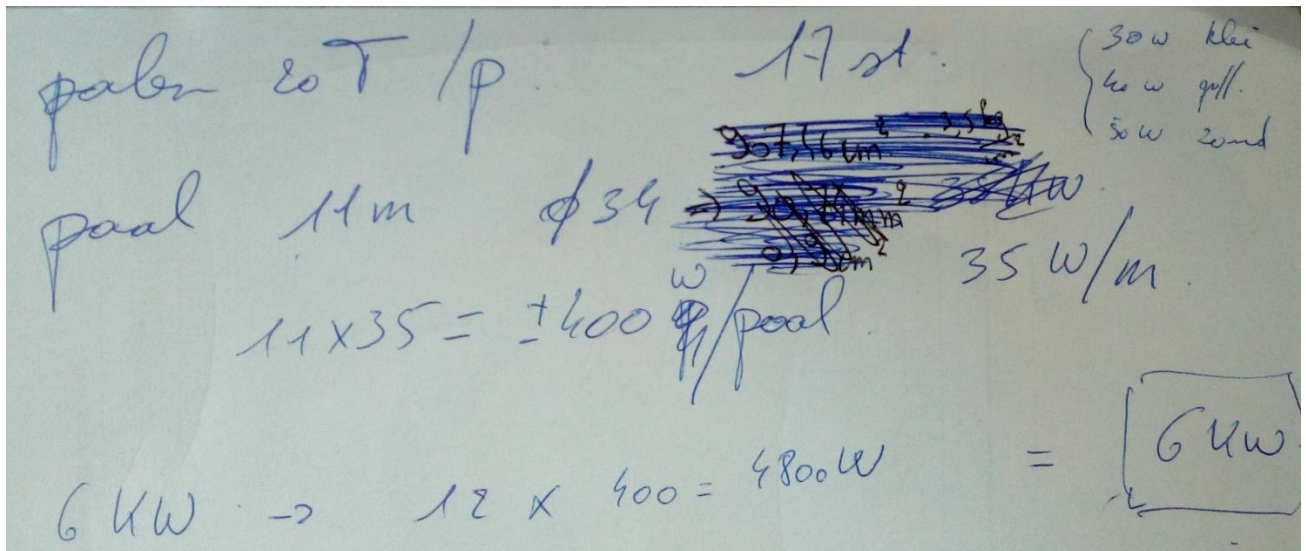 palen 20T /p 17 st.
30w klei
40 w
50w zand
paal 11m φ34
907,46 cm²
35 KW
35 W/m
11x35 = ±400 W /paal
6 KW -> 12 x 400 = 4800W = 6 KW